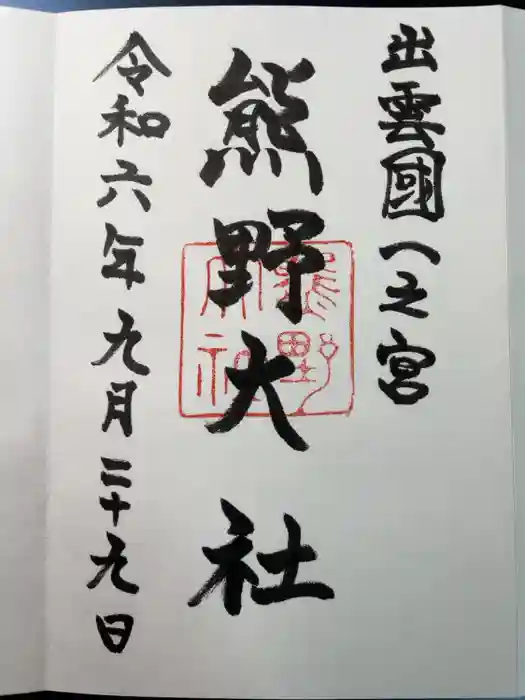 出雲國一之宮
熊野大社
熊野大社
令和六年九月二十九日